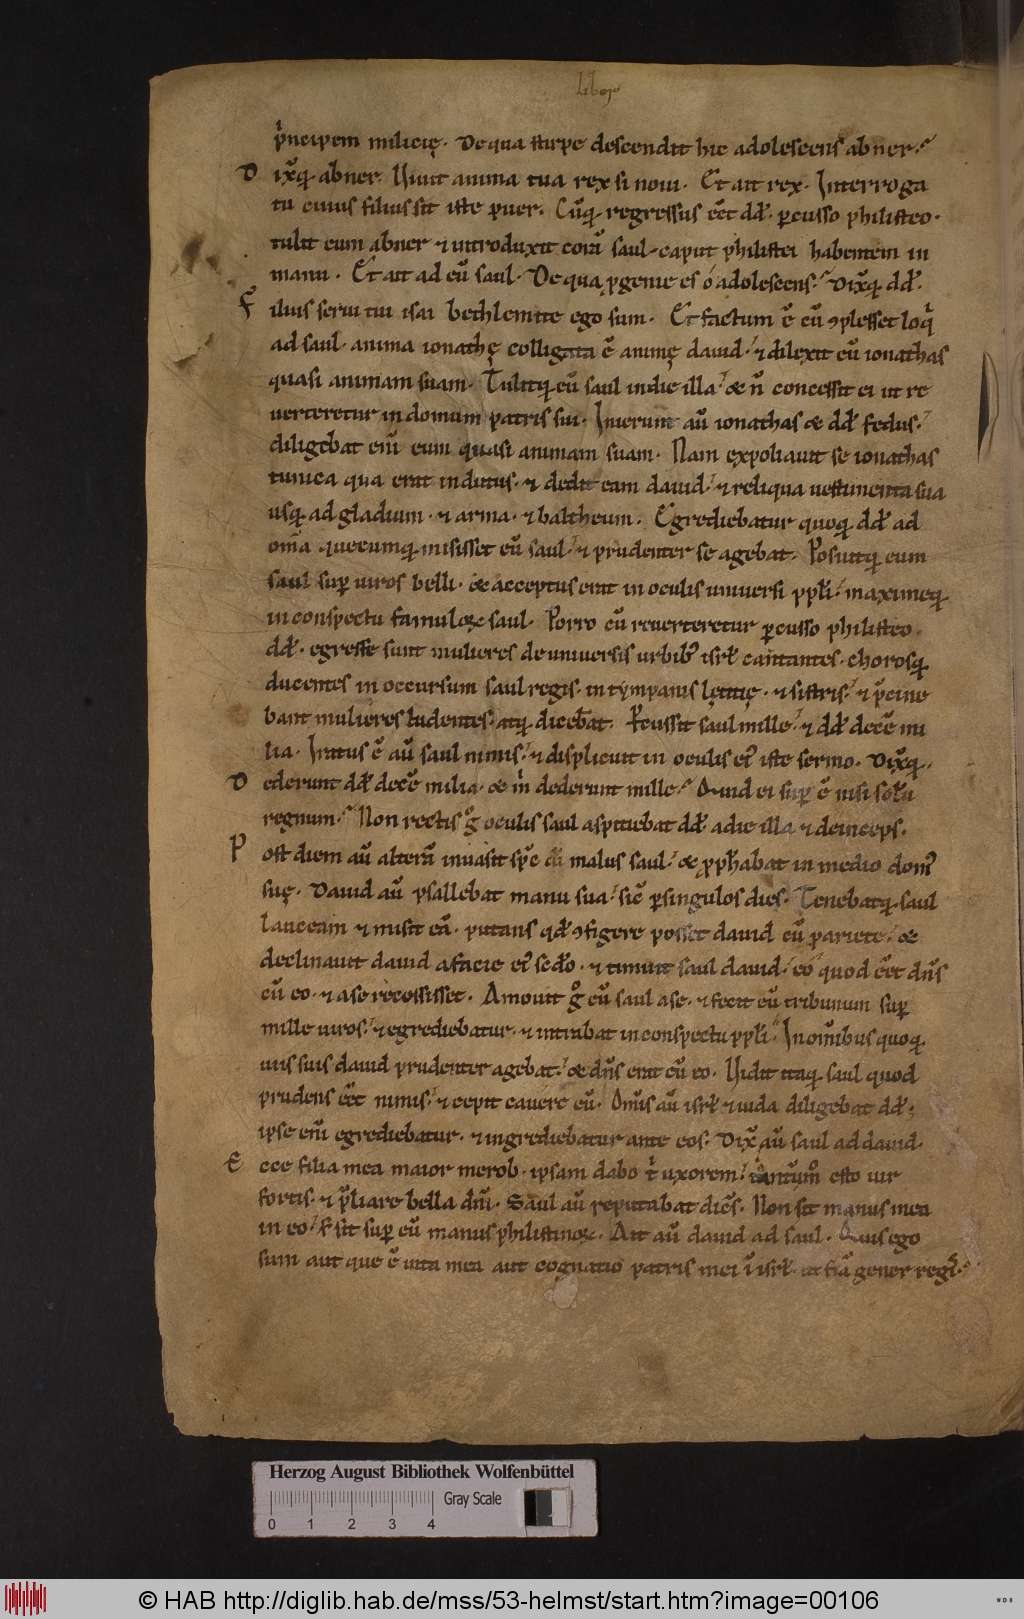 Liber
p̾ncipem milicię. De qua stirpe descendit hic adolescens abner.
Dix̄q; abner. Vivit anima tua rex si novi. Et ait rex. Interroga
tu cuius filius sit iste puer. Cūq; regressus eēt dd̄. p̱cusso philisteo.
tulit eum abner ⁊ introduxit corā saul. caput philistei habentem in
manu. Et ait ad eū saul. De qua ꝓgenie es ó adolescens. Dix̄q; dd̄.
Filius servi tui isai bethlemite ego sum. Et factum ē cū ꝯplesset loq̾
ad saul. anima ionathę colligata ē animę david. ⁊ dilexit eū ionathas
quasi animam suam. Tulitq; eū saul in die illa. & n̄ concessit ei ut re
verteretur in domum patris sui. Inierunt aū ionathas & dd̄ fedus.
diligebat eni̅ eum quasi animam suam. Nam expoliavit se ionathas
tunica qua erat indutus. ⁊ dedit eam david. ⁊ reliqua vestimenta sua
usq; ad gladium. ⁊ arma. ⁊ baltheum. Egrediebatur quoq; dd̄ ad
omīa quecumq; misisset eū saul. ⁊ prudenter se agebat. Posuitq; eum
saul sup̱ viros belli. & acceptus erat in oculis universi ppl̄i. maximeq;
in conspectu famuloꝝ saul. Porro cū reverteretur p̱cusso philisteo
dd̄. egresse sunt mulieres de universis urbib; isrl̄ cantantes. chorosq;
ducentes in occursum saul regis. in tympanis lętitię. ⁊ sistris. ⁊ p̄cine
bant mulieres ludentes. atq; dicebāt. P̱cussit saul mille. ⁊ dd̄ decē mi
lia. Iratus ē aū saul nimis. ⁊ displicuit in oculis ei; iste sermo. Dix̄q;.
Dederunt dd̄ decē milia. & m̾ dederunt mille. Quid ei sup̱ ē nisi solū
regnum. Non rectis g̊ oculis saul aspitiebat dd̄ a die illa ⁊ deinceps.
Post diem aū alterā invasit sp̄c di malus saul. & ꝓphabat in medio dom;
suę. David aū psallebat manu sua. sic̄ p̱ singulos dies. Tenebatq; saul
lanceam ⁊ misit eā. putans qd̄ ꝯfigere posset david cū pariete. &
declinavit david a facie ei; sed̄o. ⁊ timuit saul david. eo quod eēt dn̄s
cū eo. ⁊ a se recessisset. Amovit g̊ eū saul a se. ⁊ fecit eū tribunum sup̱
mille viros. ⁊ egrediebatur. ⁊ intrabat in conspectu ppl̄i. In om̄ibus quoq;
viis suis david prudenter agebat. & dn̄s erat cū eo. Vidit itaq; saul quod
prudens eēt nimis. ⁊ cepit cavere eū. Om̄is aū isrl̄ ⁊ iuda diligebat dd̄.
ipse eni̅ egrediebatur. ⁊ ingrediebatur ante eos. Dix̄ aū saul ad david.
Ecce filia mea maior merob. ipsam dabo t̾ uxorem. tantūm̊ esto vir
fortis. ⁊ p̄liare bella dn̄i. Saul aū reputabat dicēs. Non sit manus mea
in eo. s; sit sup̱ eū manus philistinoꝝ. Ait aū david ad saul. Quis ego
sum aut que ē vita mea aut cognatio patris mei ī isrl̄. ut fiā gener regis.
Herzog August Bibliothek Wolfenbüttel
Gray Scale
0 1 2 3 4
© HAB http://diglib.hab.de/mss/53-helmst/start.htm?image=00106